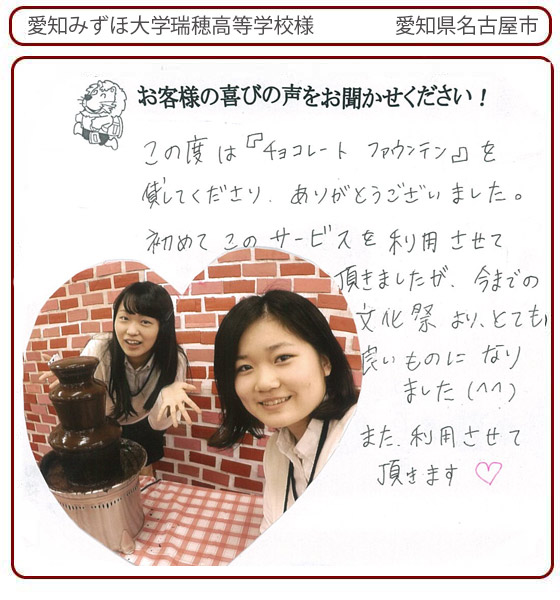 愛知みずほ大学瑞穂高等学校様 愛知県名古屋市
お客様の喜びの声をお聞かせください！
この度は『チョコレート ファウンテン』を
貸してくださり、ありがとうございました。
初めてこのサービスを利用させて
頂きましたが、今までの
文化祭より、とても
良いものになり
ました(^^)
また、利用させて
頂きます♡